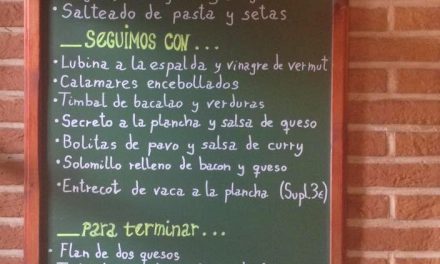 • Salteado de pasta y setas
__ SEGUIMOS CON...
• Lubina a la espalda y vinagre de vermut
• Calamares encebollados
• Timbal de bacalao y verduras
• Secreto a la plancha y salsa de queso
• Bolitas de pavo y salsa de curry
• Solomillo relleno de bacon y queso
• Entrecot de vaca a la plancha (Supl.3€)
__ para terminar...
• Flan de dos quesos